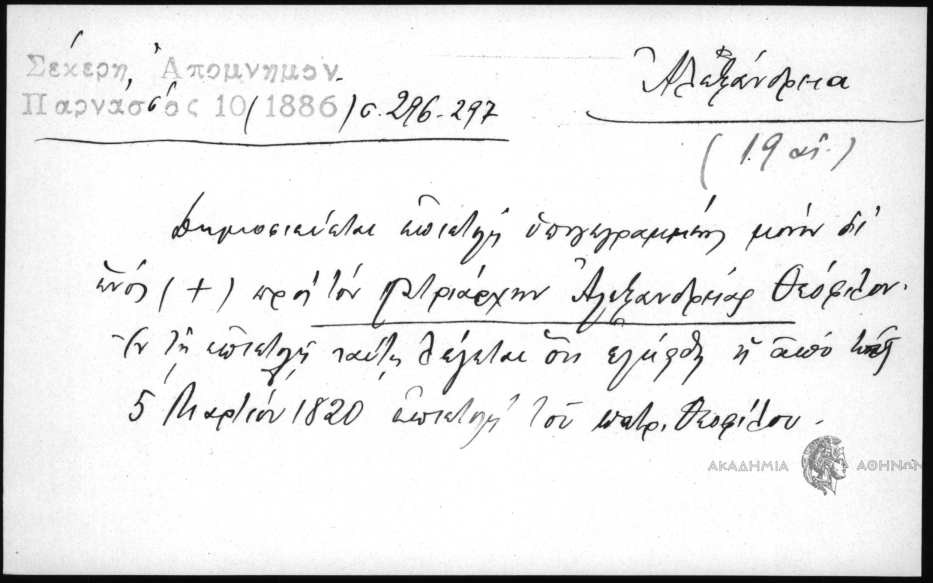 Σέκερη, Ἀπομνημον.
Παρνασσός 10 (1886) σ. 296-297
Ἀλεξάνδρεια
(19 αἰ.)
Δημοσιεύεται ἐπιστολή ὑπογεγραμμένη μόνον δι'
ἑνός (+) πρός τόν πατριάρχην Ἀλεξανδρείας Θεόφιλον.
Ἐν τῇ ἐπιστολῇ ταύτῃ λέγεται ὅτι ἐλήφθη ἡ ἀπό
5 Μαρτίου 1820 ἐπιστολή τοῦ πατρ. Θεοφίλου.
ΑΚΑΔΗΜΙΑ ΑΘΗΝΩΝ